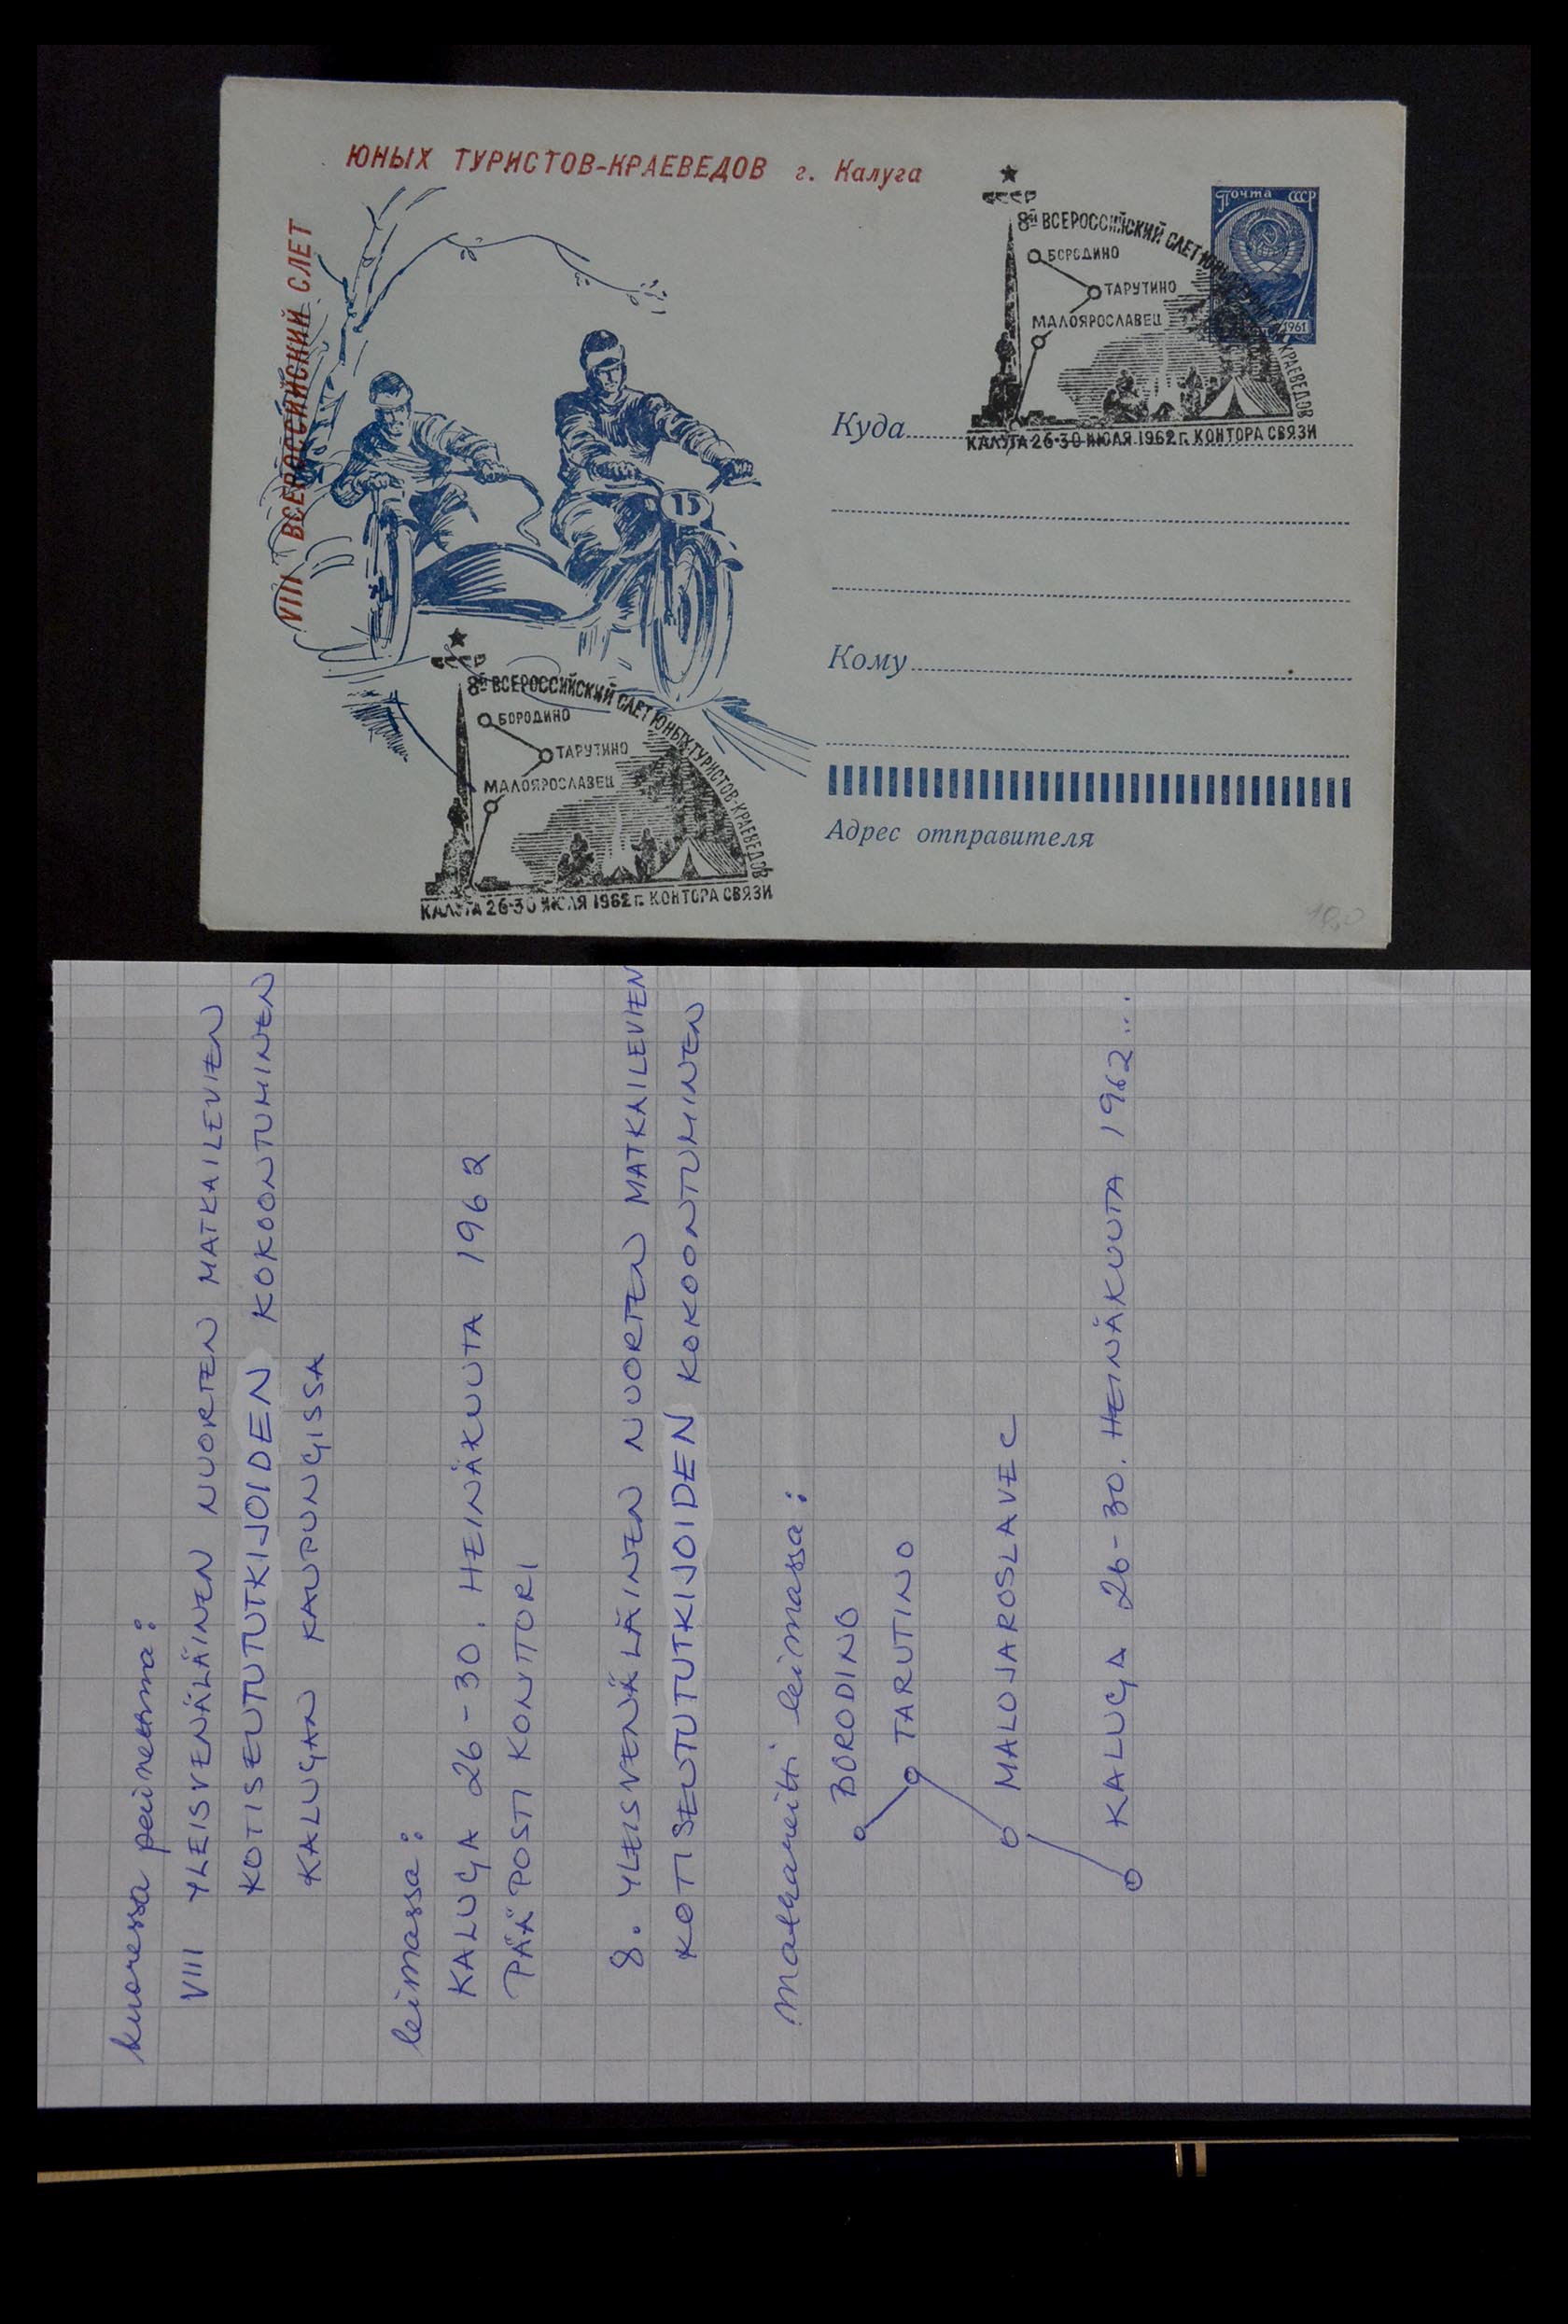 VIII ВСЕРОССИЙСКИЙ СЛЕТ
ЮНЫХ ТУРИСТОВ-КРАЕВЕДОВ г. Калуга
Почта СССР
1961
СССР
8й ВСЕРОССИЙСКИЙ СЛЕТ ЮНЫХ ТУРИСТОВ-КРАЕВЕДОВ
БОРОДИНО
ТАРУТИНО
МАЛОЯРОСЛАВЕЦ
КАЛУГА 26-30 ИЮЛЯ 1962 г. КОНТОРА СВЯЗИ
15
Куда
Кому
Адрес отправителя
СССР
8й ВСЕРОССИЙСКИЙ СЛЕТ ЮНЫХ ТУРИСТОВ-КРАЕВЕДОВ
БОРОДИНО
ТАРУТИНО
МАЛОЯРОСЛАВЕЦ
КАЛУГА 26-30 ИЮЛЯ 1962 г. КОНТОРА СВЯЗИ
kuoressa painettuna:
VIII YLEISVENÄLÄINEN NUORTEN MATKAILEVIEN
KOTISEUTUTUTKIJOIDEN KOKOONTUMINEN
KALUGAN KAUPUNGISSA
leimassa:
KALUGA 26-30. HEINÄKUUTA 1962
PÄÄPOSTI KONTTORI
8. YLEISVENÄLÄINEN NUORTEN MATKAILEVIEN
KOTISEUTUTUTKIJOIDEN KOKOONTUMINEN
matkareitti leimassa:
BORODINO
TARUTINO
MALOJAROSLAVEC
KALUGA 26-30. HEINÄKUUTA 1962...